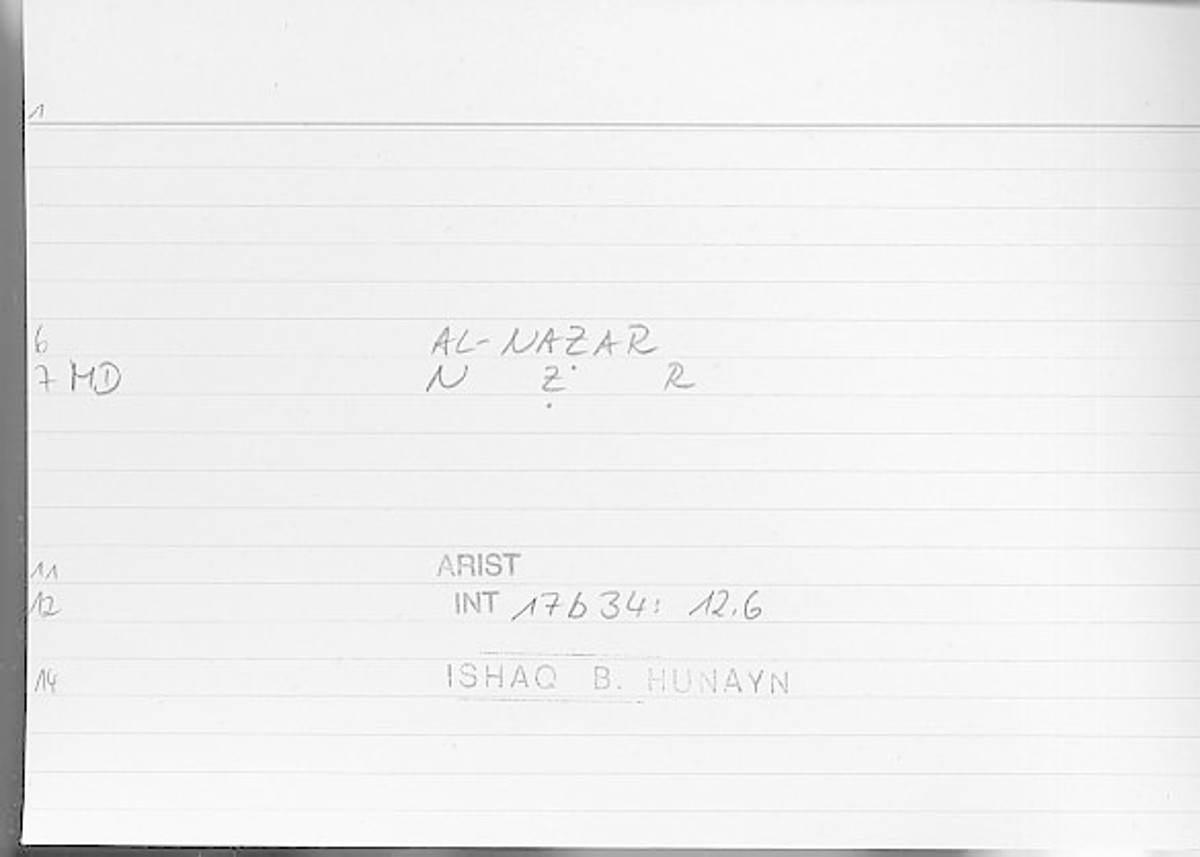 1
6 AL-NAẒAR
7 MD N Ẓ R
11 ARIST
12 INT 17b34: 12.6
14 ISHAQ B. HUNAYN